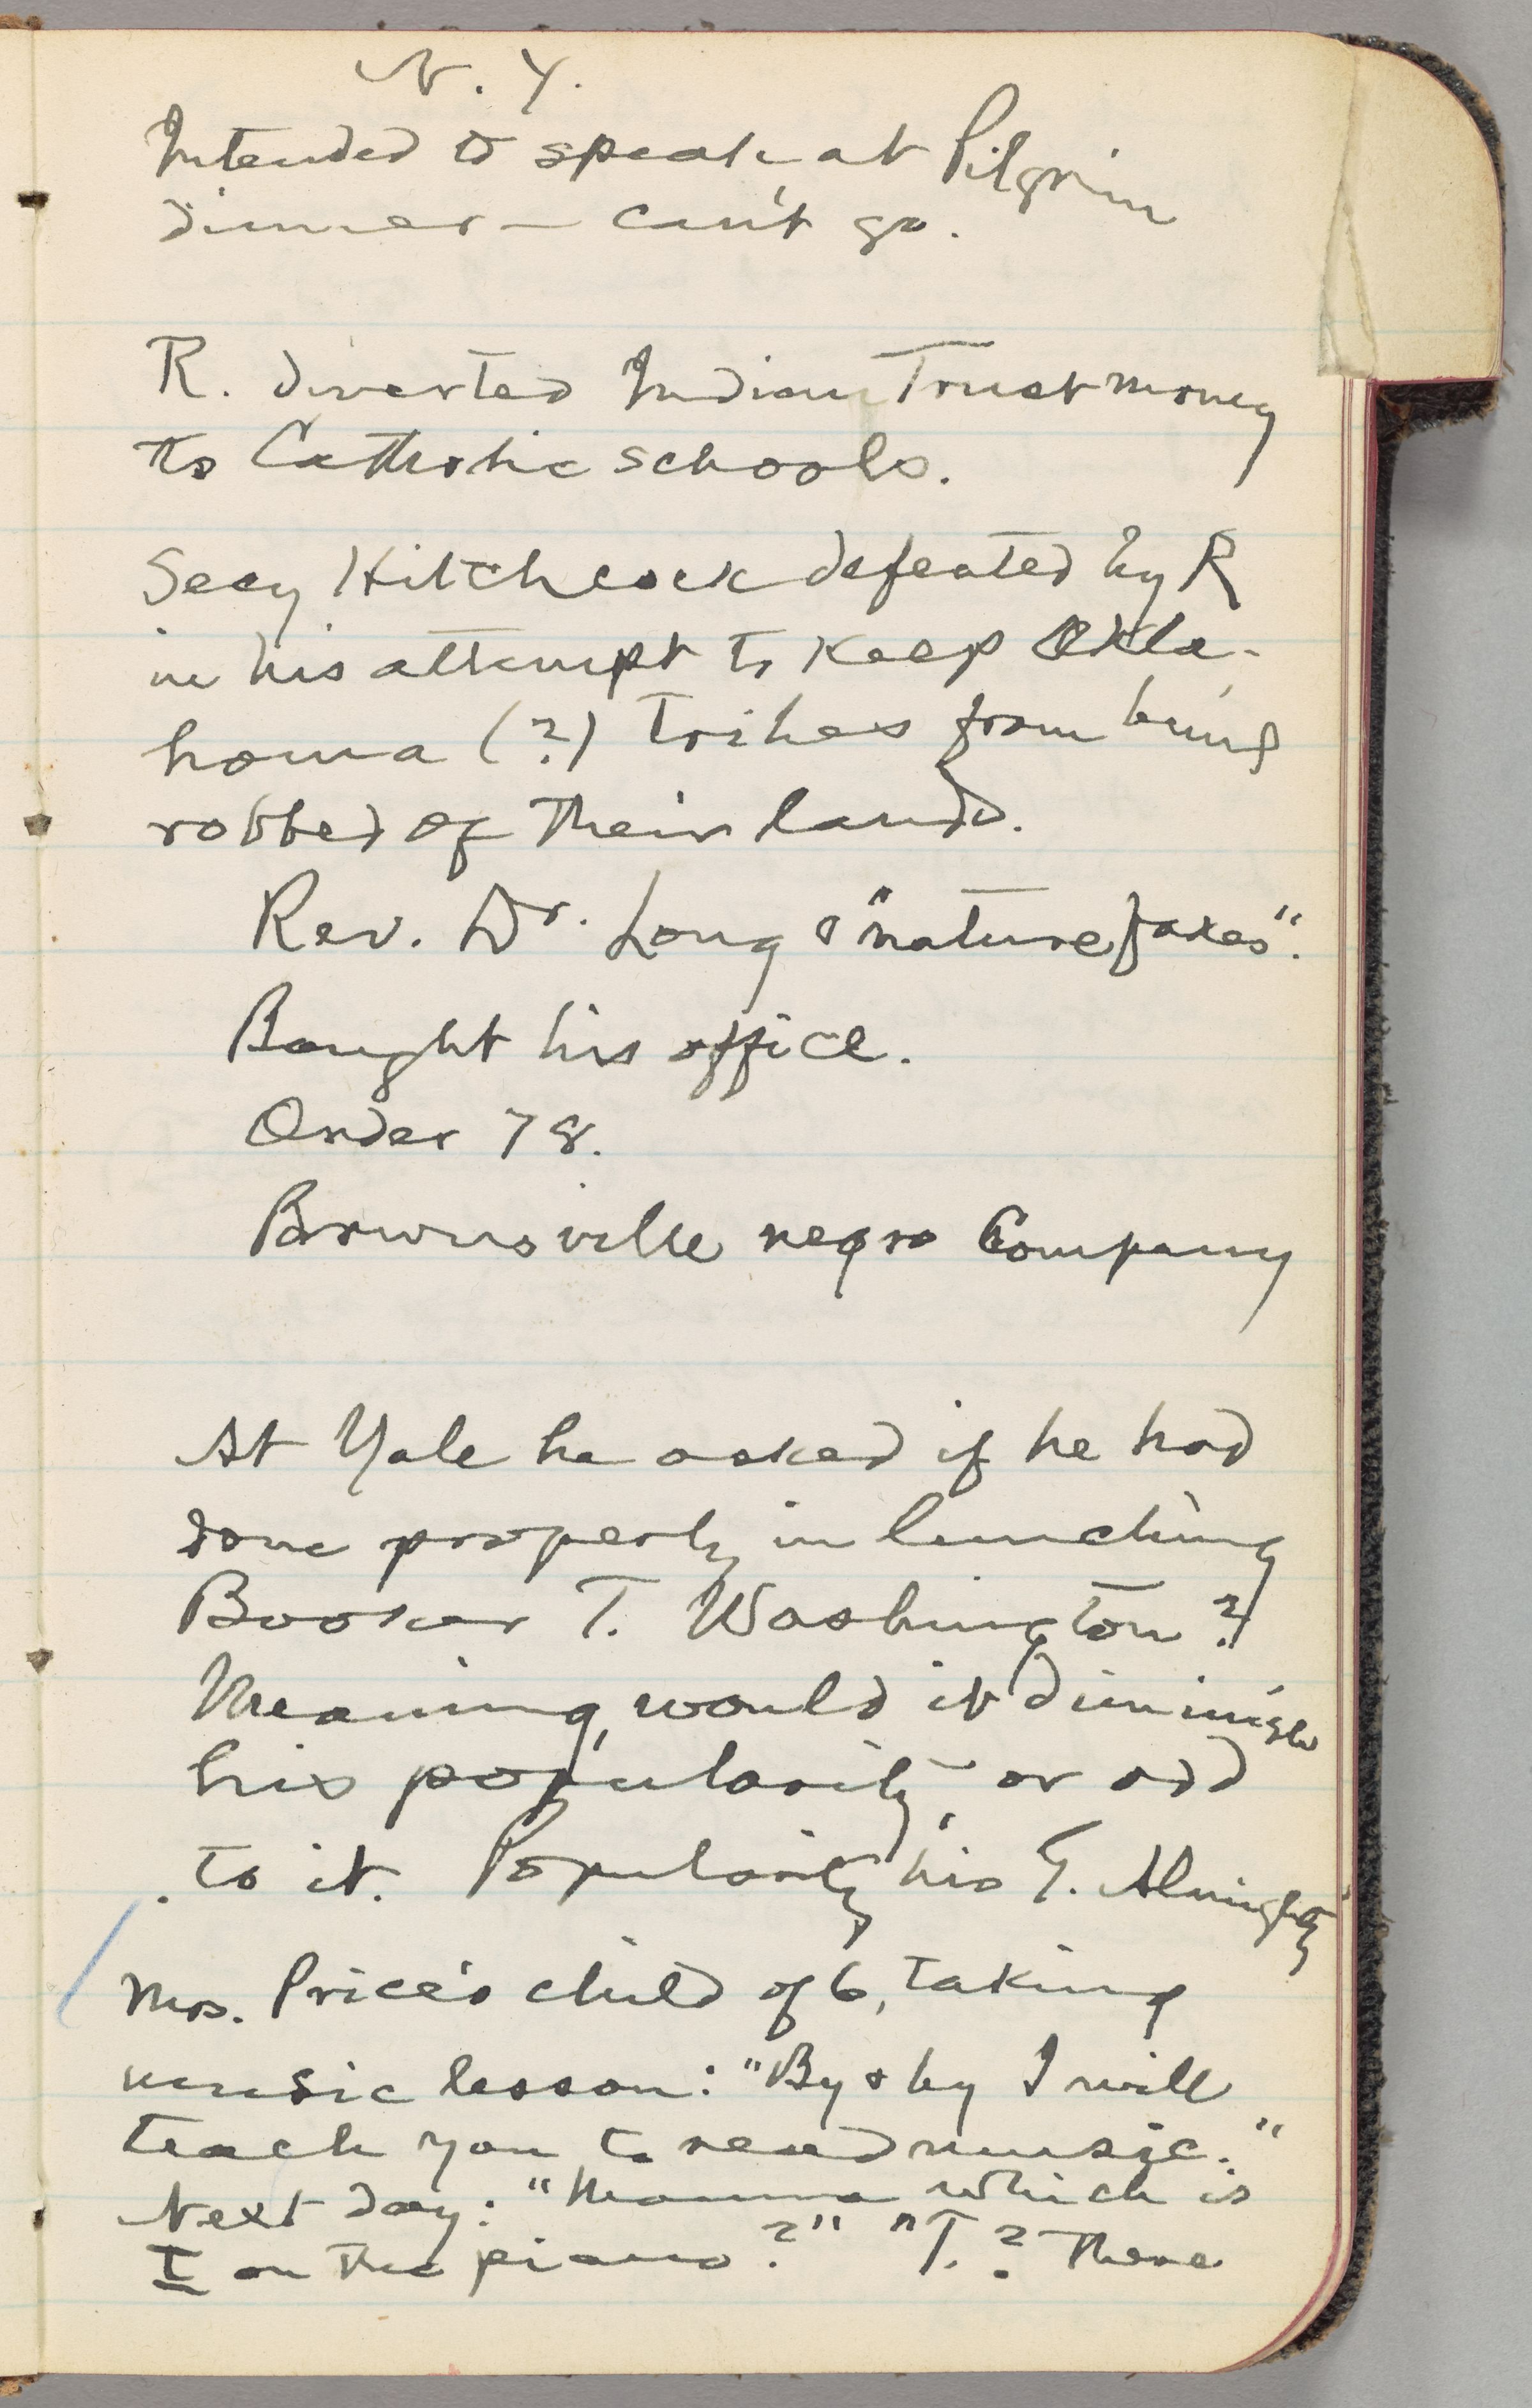 N. Y.
Intended to speak at Pilgrim
dinner — can't go.
R. diverted Indian Trust money
to Catholic schools.
Secy Hitchcock defeated by R
in his attempt to keep Okla-
homa (?) tribes from being
robbed of their lands.
Rev. Dr. Long & "nature fakes".
Bought his office.
Order 78.
Brownsville negro Company
At Yale he asked if he had
done properly in lunching
Booker T. Washington?
Meaning, would it diminish
his popularity, or add
to it. Popularity his G. Almighty
Mrs. Price's child of 6, taking
music lesson: "By & by I will
teach you to read music."
Next day: "Mamma which is
T on the piano?" "T.? There